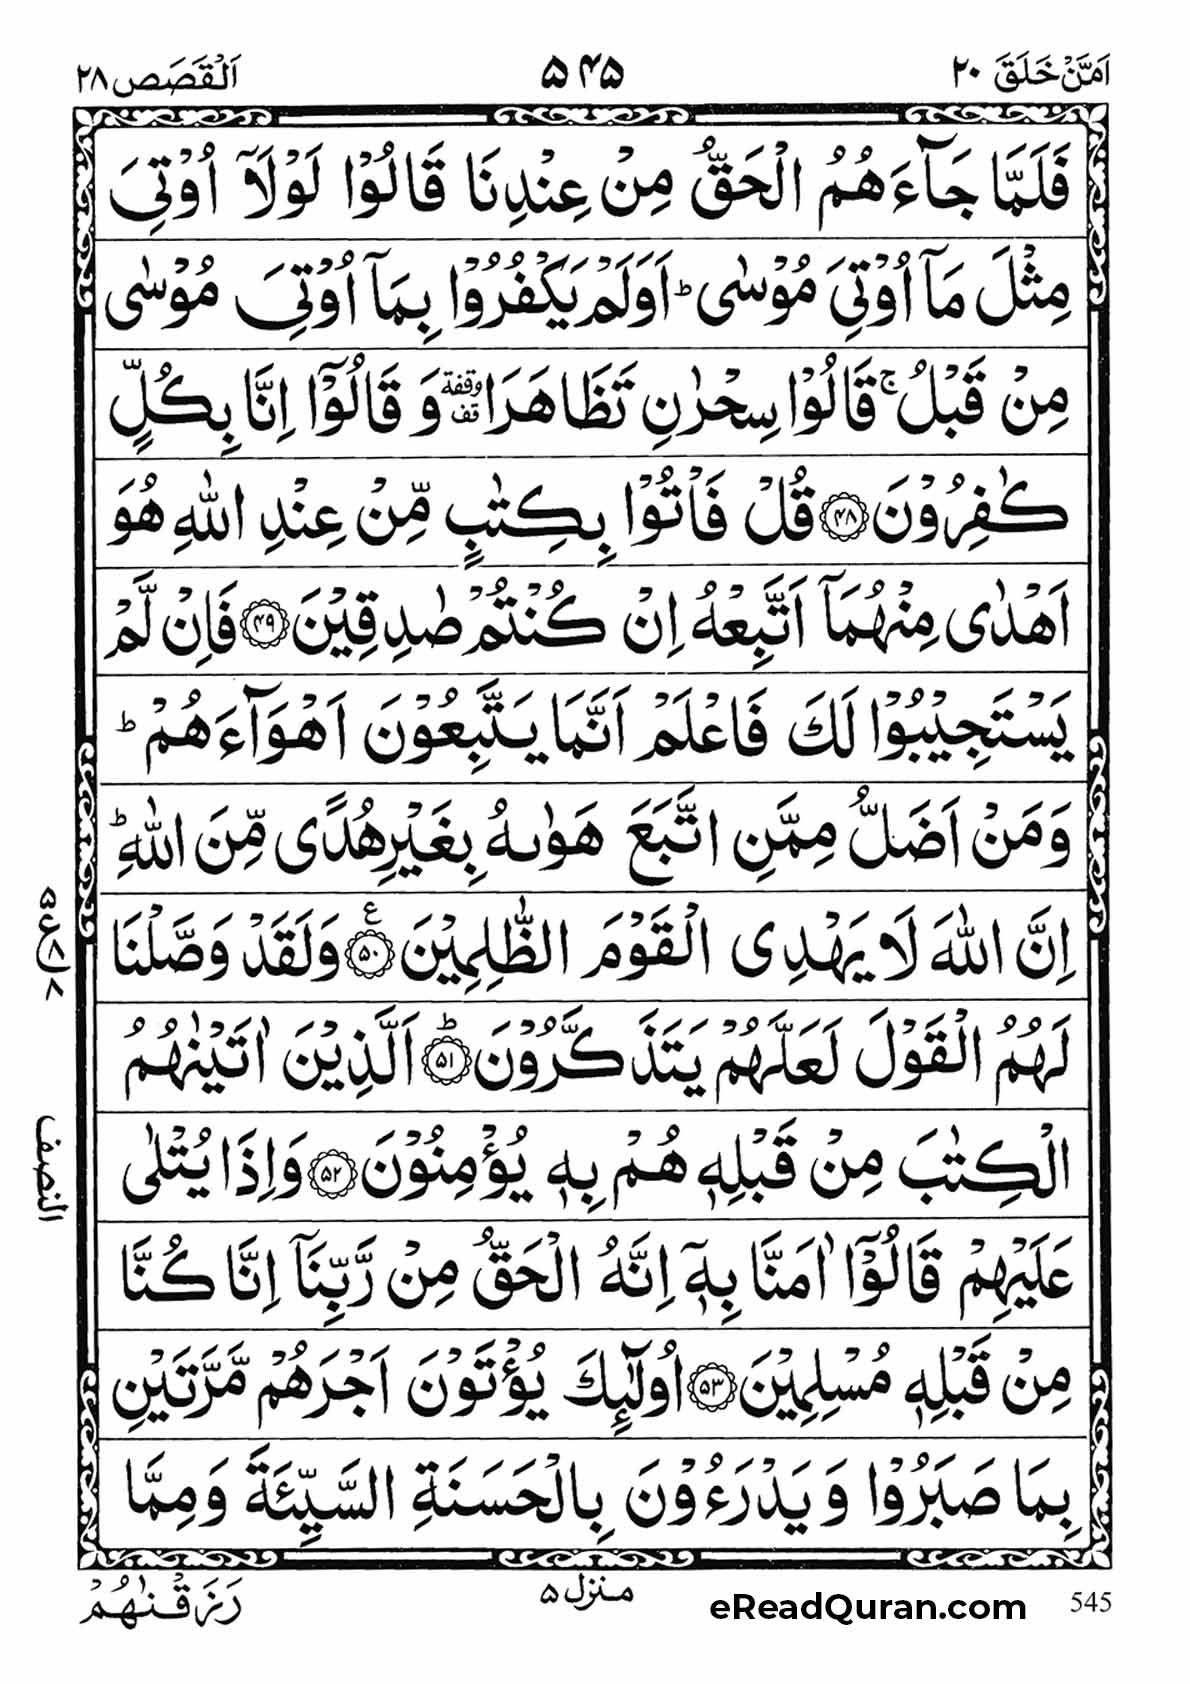 اَمَّنْ خَلَقَ ٢٠
۵۴۵
اَلْقَصَص ٢٨
فَلَمَّا جَآءَهُمُ الْحَقُّ مِنْ عِنْدِنَا قَالُوْا لَوْلَاۤ اُوْتِیَ
مِثْلَ مَاۤ اُوْتِیَ مُوْسٰی ؕ اَوَلَمْ یَكْفُرُوْا بِمَاۤ اُوْتِیَ مُوْسٰی
مِنْ قَبْلُ ۚ قَالُوْا سِحْرٰنِ تَظَاهَرَا وقفة قف وَ قَالُوْۤا اِنَّا بِكُلٍّ
كٰفِرُوْنَ ﴿۴۸﴾ قُلْ فَاْتُوْا بِكِتٰبٍ مِّنْ عِنْدِ اللّٰهِ هُوَ
اَهْدٰی مِنْهُمَاۤ اَتَّبِعْهُ اِنْ كُنْتُمْ صٰدِقِیْنَ ﴿۴۹﴾ فَاِنْ لَّمْ
یَسْتَجِیْبُوْا لَكَ فَاعْلَمْ اَنَّمَا یَتَّبِعُوْنَ اَهْوَآءَهُمْ ؕ
وَمَنْ اَضَلُّ مِمَّنِ اتَّبَعَ هَوٰىهُ بِغَیْرِ هُدًی مِّنَ اللّٰهِ ؕ
اِنَّ اللّٰهَ لَا یَهْدِی الْقَوْمَ الظّٰلِمِیْنَ ﴿۵۰﴾ ع وَلَقَدْ وَصَّلْنَا
لَهُمُ الْقَوْلَ لَعَلَّهُمْ یَتَذَكَّرُوْنَ ﴿۵۱﴾ ؕ اَلَّذِیْنَ اٰتَیْنٰهُمُ
الْكِتٰبَ مِنْ قَبْلِهٖ هُمْ بِهٖ یُؤْمِنُوْنَ ﴿۵۲﴾ وَاِذَا یُتْلٰی
عَلَیْهِمْ قَالُوْۤا اٰمَنَّا بِهٖۤ اِنَّهُ الْحَقُّ مِنْ رَّبِّنَاۤ اِنَّا كُنَّا
مِنْ قَبْلِهٖ مُسْلِمِیْنَ ﴿۵۳﴾ اُولٰٓئِكَ یُؤْتَوْنَ اَجْرَهُمْ مَّرَّتَیْنِ
بِمَا صَبَرُوْا وَ یَدْرَءُوْنَ بِالْحَسَنَةِ السَّیِّئَةَ وَ مِمَّا
۵ ع ۷ ۸
النصف
رَزَقْنٰهُمْ
منزل ۵
eReadQuran.com
545